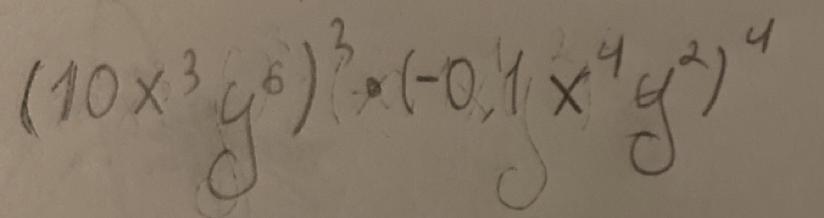 (10x³y⁶)³•(-0,1x⁴y²)⁴